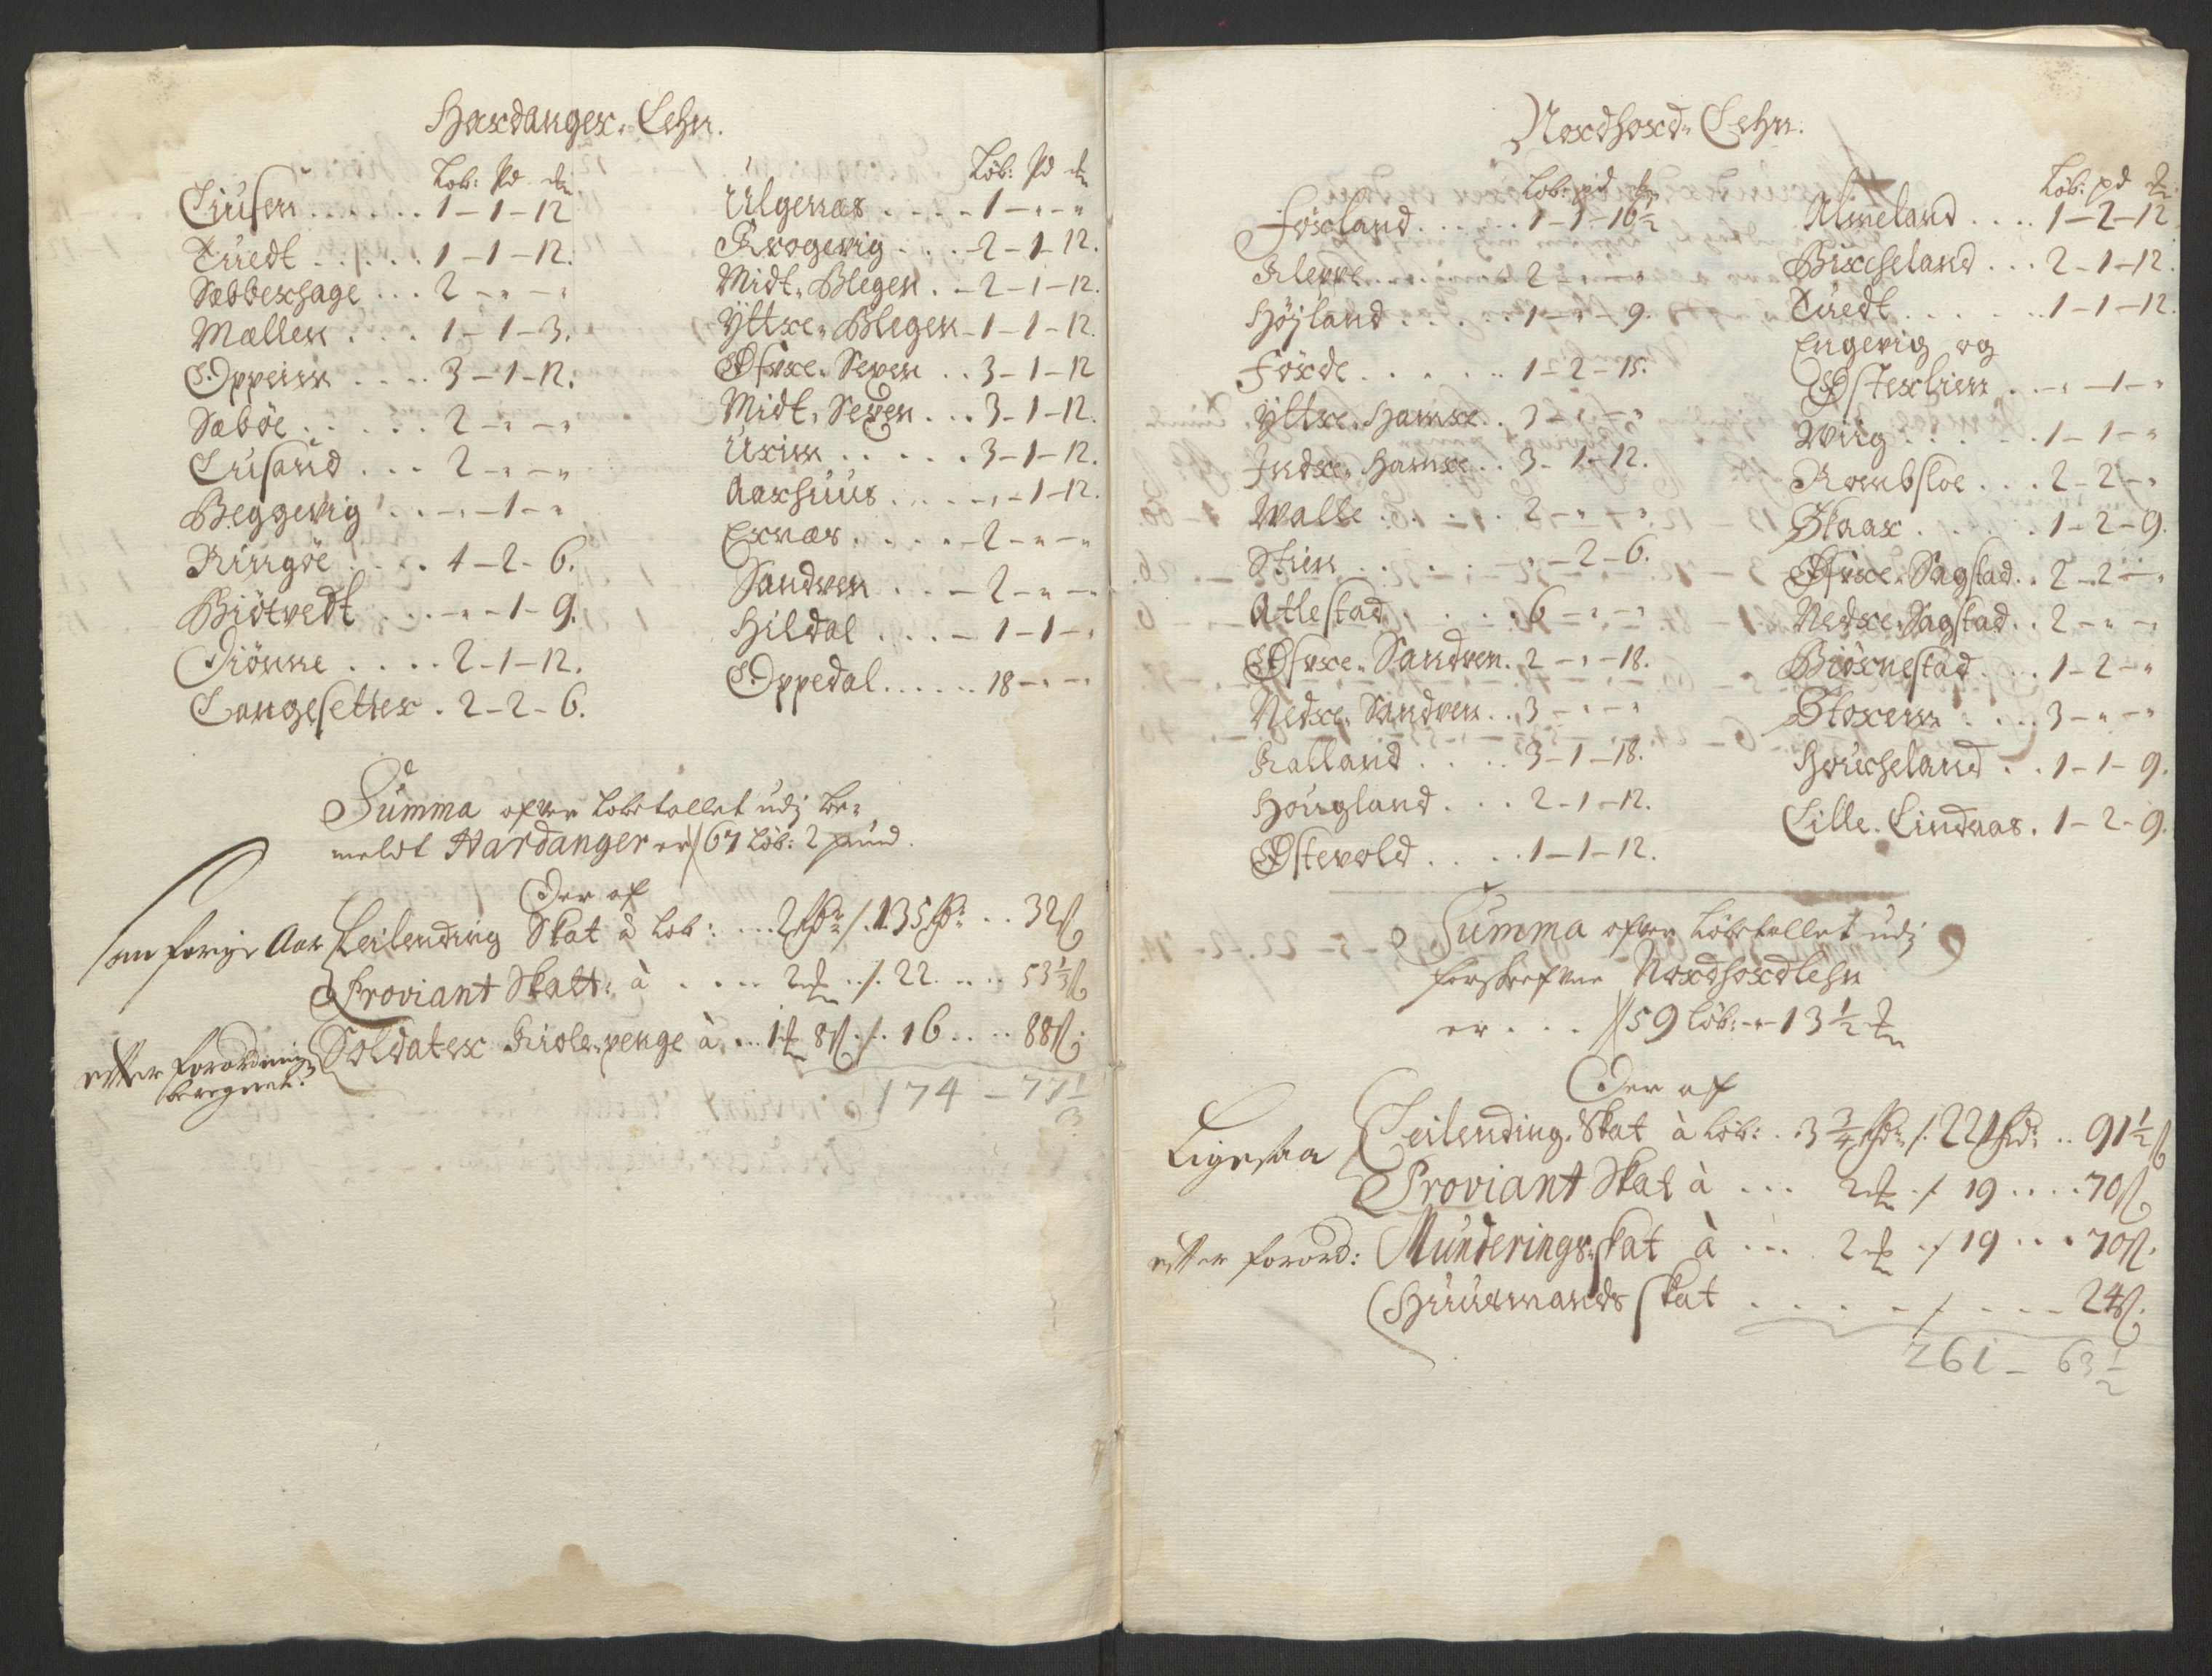 Hardanger. Lehn.
Løb: Pd ℔.
Liusen . . . . . . 1 – 1 – 12
Tuedt . . . . . 1 – 1 – 12.
Sæbberhage . . . 2 – " – "
Mællen . . . 1 – 1 – 3.
Oppeim . . . . 3 – 1 – 12.
Sæbøe . . . . . 2 – " – "
Liusand . . . 2 – " – "
Beggevig . . – " – 1 – "
Ringøe . . . . 4 – 2 – 6.
Biøtvedt . . . – " – 1 – 9.
Diønne . . . . 2 – 1 – 12.
Langesetter . 2 – 2 – 6.
Løb: Pd ℔
Ulgenæs . . . . 1 – " – "
Krogevig . . . 2 – 1 12.
Midt. Blegen . – 2 – 1 – 12.
Yttre. Blegen – 1 – 1 – 12.
Øfvre. Seven . . 3 – 1 – 12
Midt. Seven . . . 3 – 1 – 12.
Urim . . . . . 3 – 1 – 12.
Aarhuus . . . . – " – 1 – 12.
Ernæs . . . . – 2 – " – "
Sandven . . – 2 – " – "
Hildal . . . – 1 – 1 – "
Oppedal . . . . . . 18 – " – "
Summa ofver løbetallet udj be-
meldt Hardanger er // 67 Løb: 2 pund.
Der af
som forige Aar Leilending Skat à Løb: . . . 2 ſdr /. 135 ſdr . . 32 ß
Proviant Skatt: à . . . . 2 ℔ . . /. 22 . . . . 53 1/3 ß
efter forordning beregnet. Soldater Kiole. penge à . . 1 ℔ 8 ß . /. 16 . . . . 88 ß.
174 – 77 1/3
Nordhord. Lehn.
Løb: pd ℔
Førland . . . . . . 1 – 1 – 16 1/2
Kleppe . . . . . 2 – " – "
Højland . . . . . 1 – " – 9.
Førde . . . . . . 1 – 2 – 15.
Yttre. Hamre . . 3 – " – "
Indre. Hamre . . 3 – 1 – 12.
Walle . . . . . 2 – " – "
Stien . . . . . " – 2 – 6.
Atlestad . . . . . 6 – " – "
Øfvre. Sandven . 2 – " – 18.
Nedre. Sandven . . 3 – " – "
Kalland . . . . 3 – 1 – 18.
Hougland . . . 2 – 1 – 12.
Østevold . . . . 1 – 1 – 12.
Løb: pd ℔
Almeland . . . . 1 – 2 – 12
Bircheland . . . 2 – 1 – 12.
Tuedt . . . . . . 1 – 1 – 12.
Engevig og
Østerlien . . – " – 1 – "
Wiig . . . . . . 1 – 1 – "
Rombsloe . . . 2 – 2 – "
Skaar . . . . . 1 – 2 – 9.
Øfvre. Sagstad . . 2 – 2 – "
Nedre. Sagstad . . 2 – " – "
Biørnestad . . . 1 – 2 – "
Storem . . . . 3 – " – "
Houcheland . . 1 – 1 – 9.
Lille. Lindaas . 1 – 2 – 9.
Summa ofver Løbetallet udj
forskrefvne Nordhordlehn
er . . . // 59 Løb: – " – 13 1/2 ℔
Der af
Ligesaa Leilending. Skat à Løb: . . 3 3/4 ſdr /. 221 ſdr . . 91 1/2 ß
Proviant Skat à . . . 2 ℔ ./. 19 . . . . 70 ß
efter forord: Munderings. skat à . . . 2 ℔ ./. 19 . . . 70 ß.
Huusmands skat . . . . – / – – – 24 ß.
261 – 63 1/2